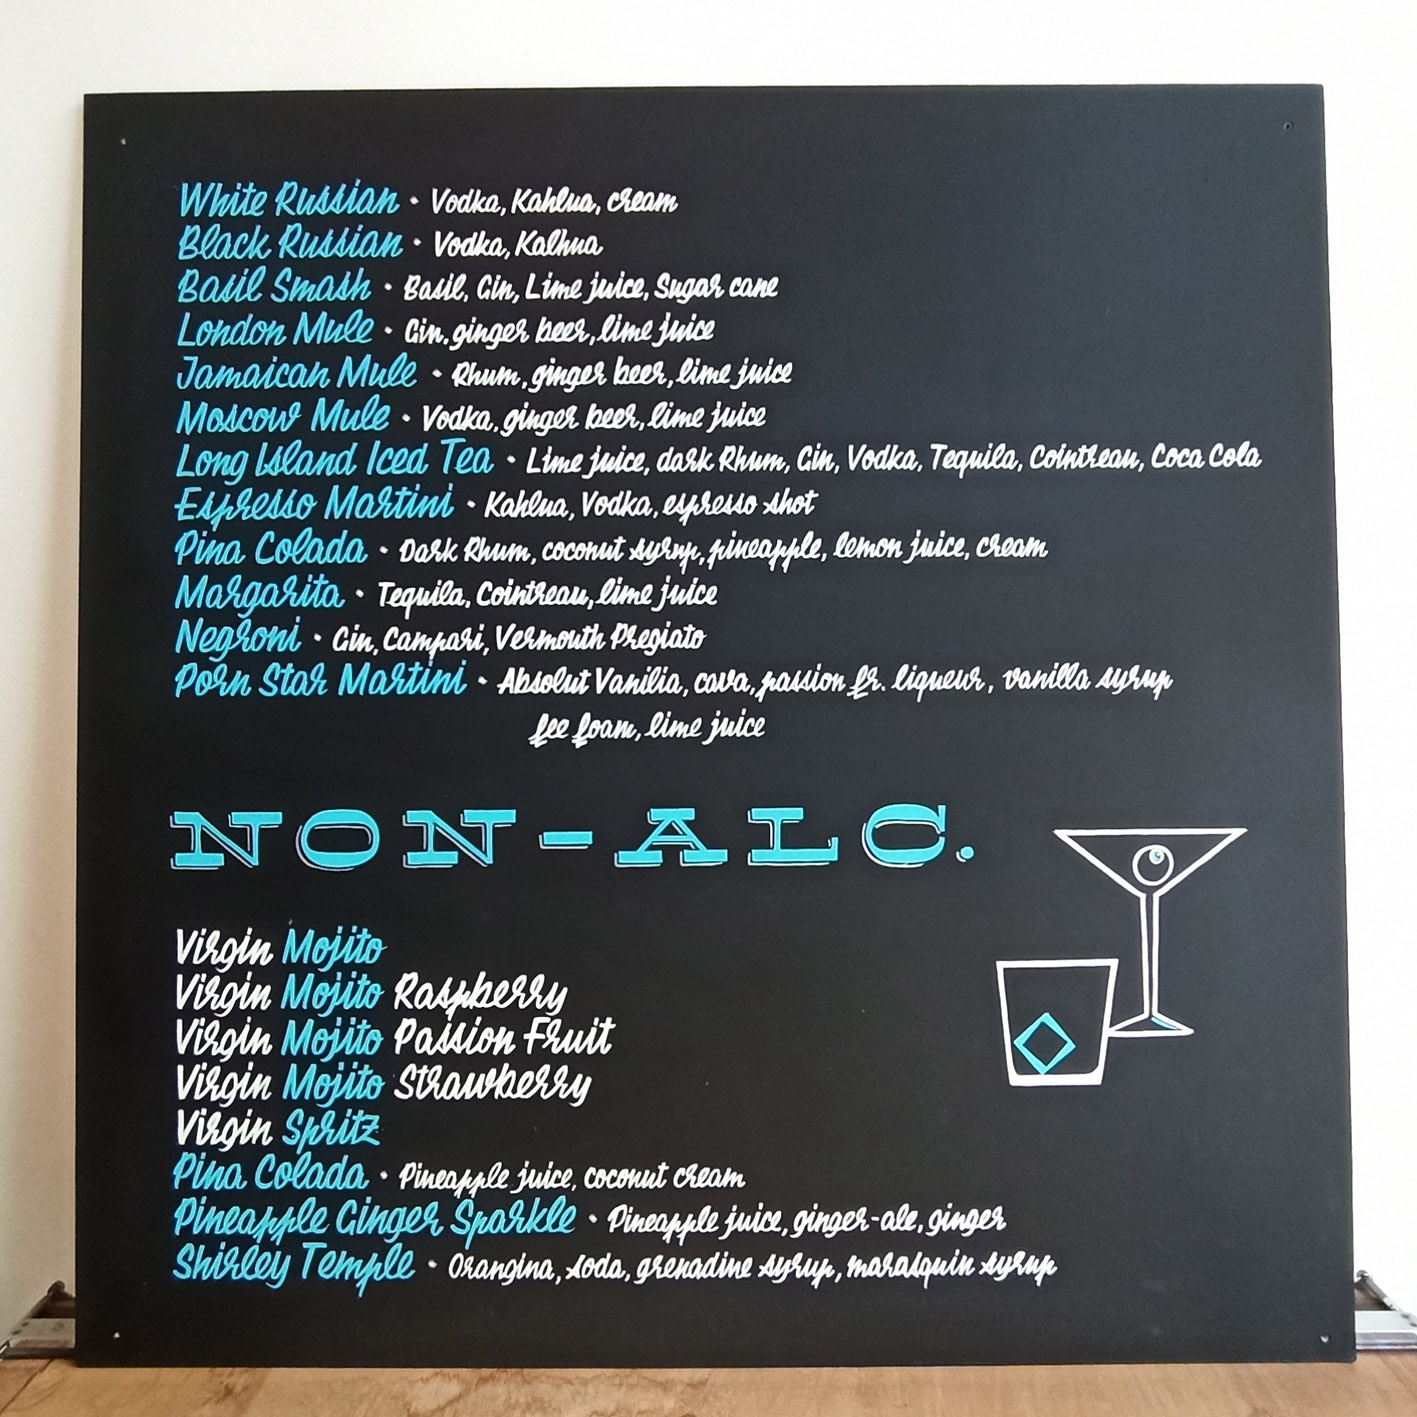 White Russian • Vodka, Kahlua, cream
Black Russian • Vodka, Kalhua
Basil Smash • Basil, Gin, Lime juice, Sugar cane
London Mule • Gin, ginger beer, lime juice
Jamaican Mule • Rhum, ginger beer, lime juice
Moscow Mule • Vodka, ginger beer, lime juice
Long Island Iced Tea • Lime juice, dark Rhum, Gin, Vodka, Tequila, Cointreau, Coca Cola
Espresso Martini • Kahlua, Vodka, espresso shot
Pina Colada • Dark Rhum, coconut syrup, pineapple, lemon juice, cream
Margarita • Tequila, Cointreau, lime juice
Negroni • Gin, Campari, Vermouth Pregiato
Porn Star Martini • Absolut Vanilia, cava, passion fr. liqueur, vanilla syrup
fee foam, lime juice
NON-ALC.
Virgin Mojito
Virgin Mojito Raspberry
Virgin Mojito Passion Fruit
Virgin Mojito Strawberry
Virgin Spritz
Pina Colada • Pineapple juice, coconut cream
Pineapple Ginger Sparkle • Pineapple juice, ginger-ale, ginger
Shirley Temple • Orangina, soda, grenadine syrup, marasquin syrup